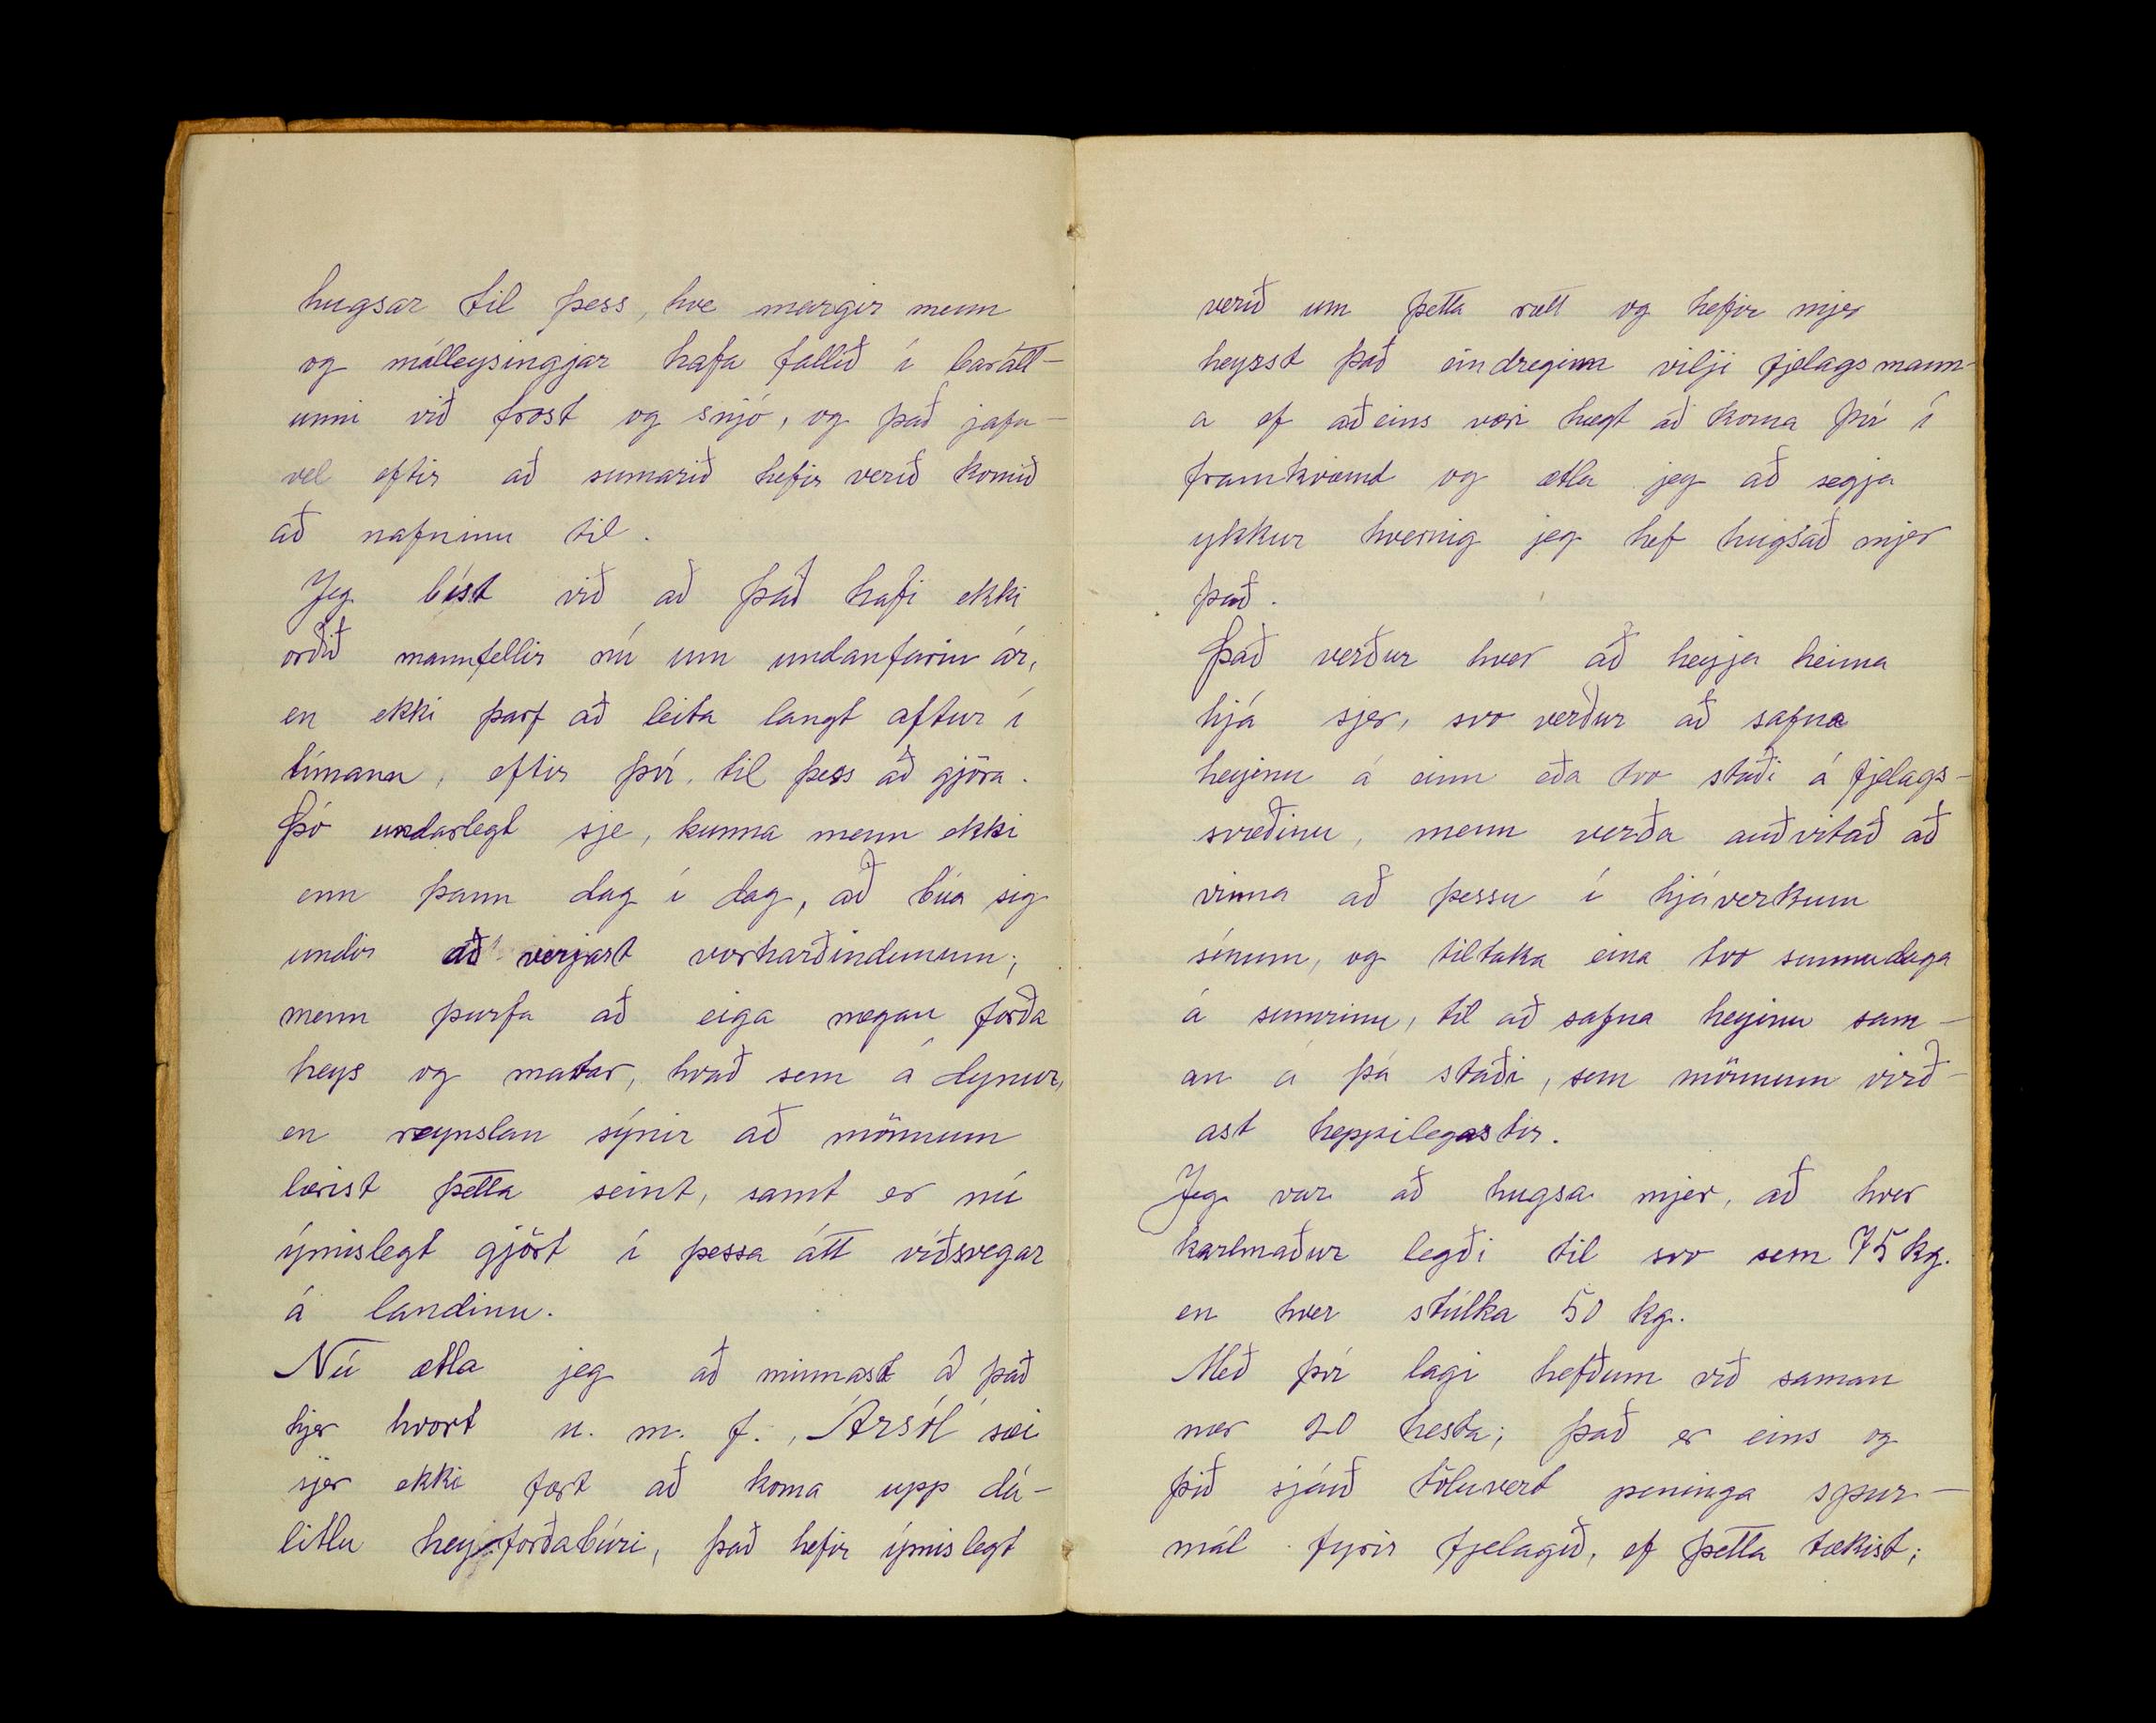 hugsar til þess, hve margir menn
og málleysingjar hafa fallið í barátt-
unni við frost og snjó, og það jafn-
vel eftir að sumarið hefir verið komið
að nafninu til.
Jeg býst við að það hafi ekki
orðið mannfellir nú um undanfarin ár,
en ekki þarf að leita langt aftur í
tímann, eftir því, til þess að gjöra.
Þó undarlegt sje, kunna menn ekki
enn þann dag í dag, að búa sig
undir að verjast vorharðindunum;
menn þurfa að eiga nægan forða
heys og matar, hvað sem á dynur,
en reynslan sýnir að mönnum
lærist þetta seint, samt er nú
ýmislegt gjört í þessa átt víðsvegar
á landinu.
Nú ætla jeg að minnast á það
hjer hvort u. m. f. "Ársól" sæi
sjer ekki fært að koma upp dá-
litlu heyforðabúri, það hefir ýmislegt
verið um þetta rætt og hefir mjer
heyrst það eindreginn vilji fjelagsmann-
a ef aðeins væri hægt að koma því í
framkvæmd og ætla jeg að segja
ykkur hvernig jeg hef hugsað mjer
það.
Það verður hver að heyja heima
hjá sjer, svo verður að safna
heyinu á einn eða tvo staði á fjelags-
svæðinu, menn verða auðvitað að
vinna að þessu í hjáverkum
sínum, og tiltaka eina tvo sunnudaga
á sumrinu, til að safna heyinu sam-
an á þá staði, sem mönnum virð-
ast heppilegastir.
Jeg var að hugsa mjer, að hver
karlmaður legði til svo sem 75 kg.
en hver stúlka 50 kg.
Með því lagi hefðum við saman
nær 20 hesta; það er eins og
þið sjáið töluvert peninga spur-
mál fyrir fjelagið, ef þetta tækist;